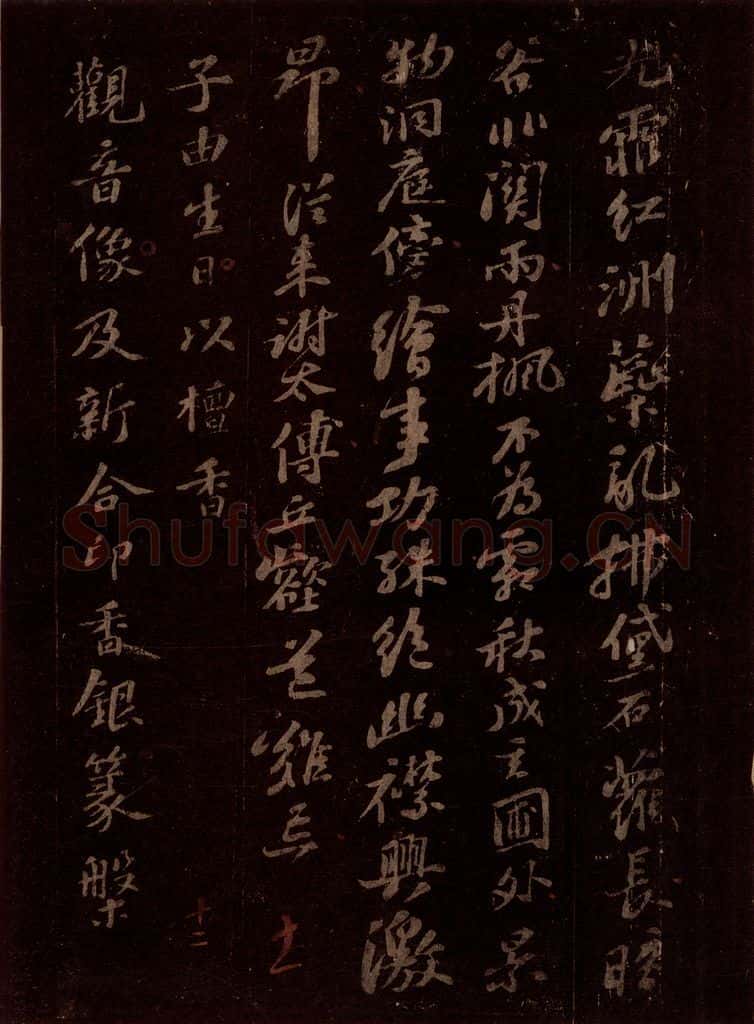 光霏紅洲蘂亂拂黛石蘿長暗
谷非関雨丹楓不為霜秋成玄圃外景
物洞庭傍繪事功殊絕幽襟興激
昂從來謝太傅丘壑道難忘
十一
子由生日以檀香
十二
觀音像及新合印香銀篆槃
Shufawang.CN